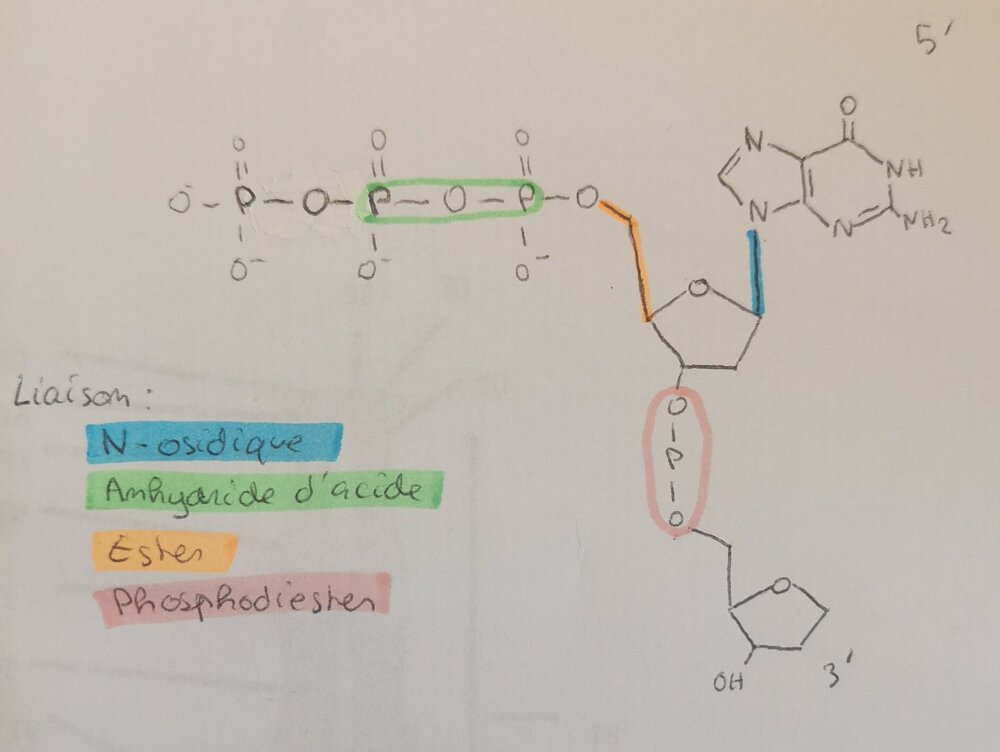 5'
O
N
O O O
NH
O⁻ - P - O - P - O - P - O
N
N
NH2
O⁻ O⁻ O⁻
O
Liaison :
O
N-osidique
P
Anhydride d'acide
O
Ester
O
Phosphodiester
OH
3'